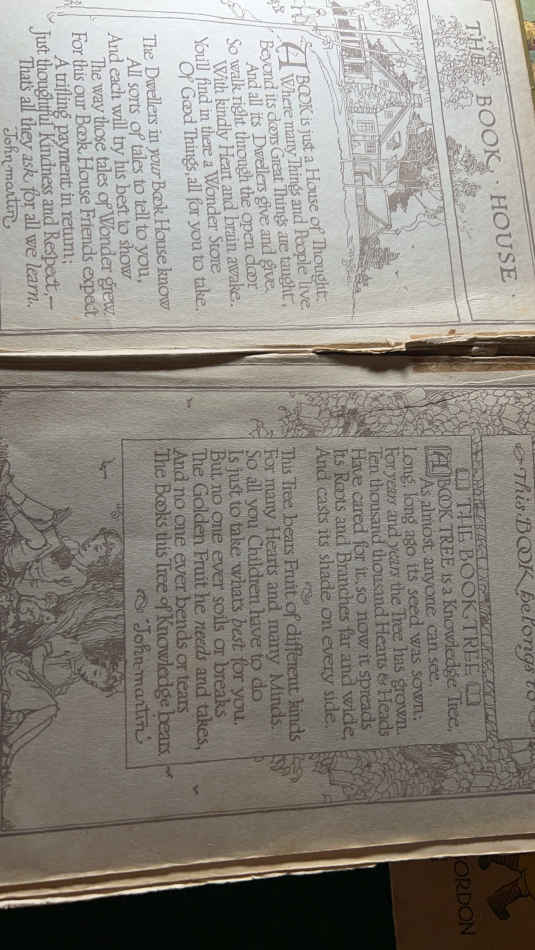 THE BOOK · HOUSE ·
A BOOK is just a House of Thought,
Where many Things and People live.
Beyond its doors Great Things are taught,
And all its Dwellers give and give.
So walk right through the open door
With kindly Heart and brain awake.
You'll find in there a Wonder Store
Of Good Things, all for you to take.
The Dwellers in your Book House know
All sorts of tales to tell to you,
And each will try his best to show
The way those tales of Wonder grew.
For this our Book House Friends expect
A trifling payment in return;
Just thoughtful Kindness and Respect,—
That's all they ask, for all we learn.
John Martin
This BOOK belongs to
THE BOOK TREE
A BOOK TREE is a Knowledge Tree,
As almost anyone can see.
Long, long ago its seed was sown;
For years and years the Tree has grown.
Ten thousand thousand Hearts & Heads
Have cared for it, so now it spreads
Its Roots and Bunches far and wide,
And casts its shade on every side.
This Tree bears Fruit of different kinds
For many Hearts and many Minds.
So all you Children have to do
Is just to take what's best for you.
But no one ever soils or breaks
The Golden Fruit he needs and takes,
And no one ever bends or tears
The Books this Tree of Knowledge bears
John Martin
ORDON